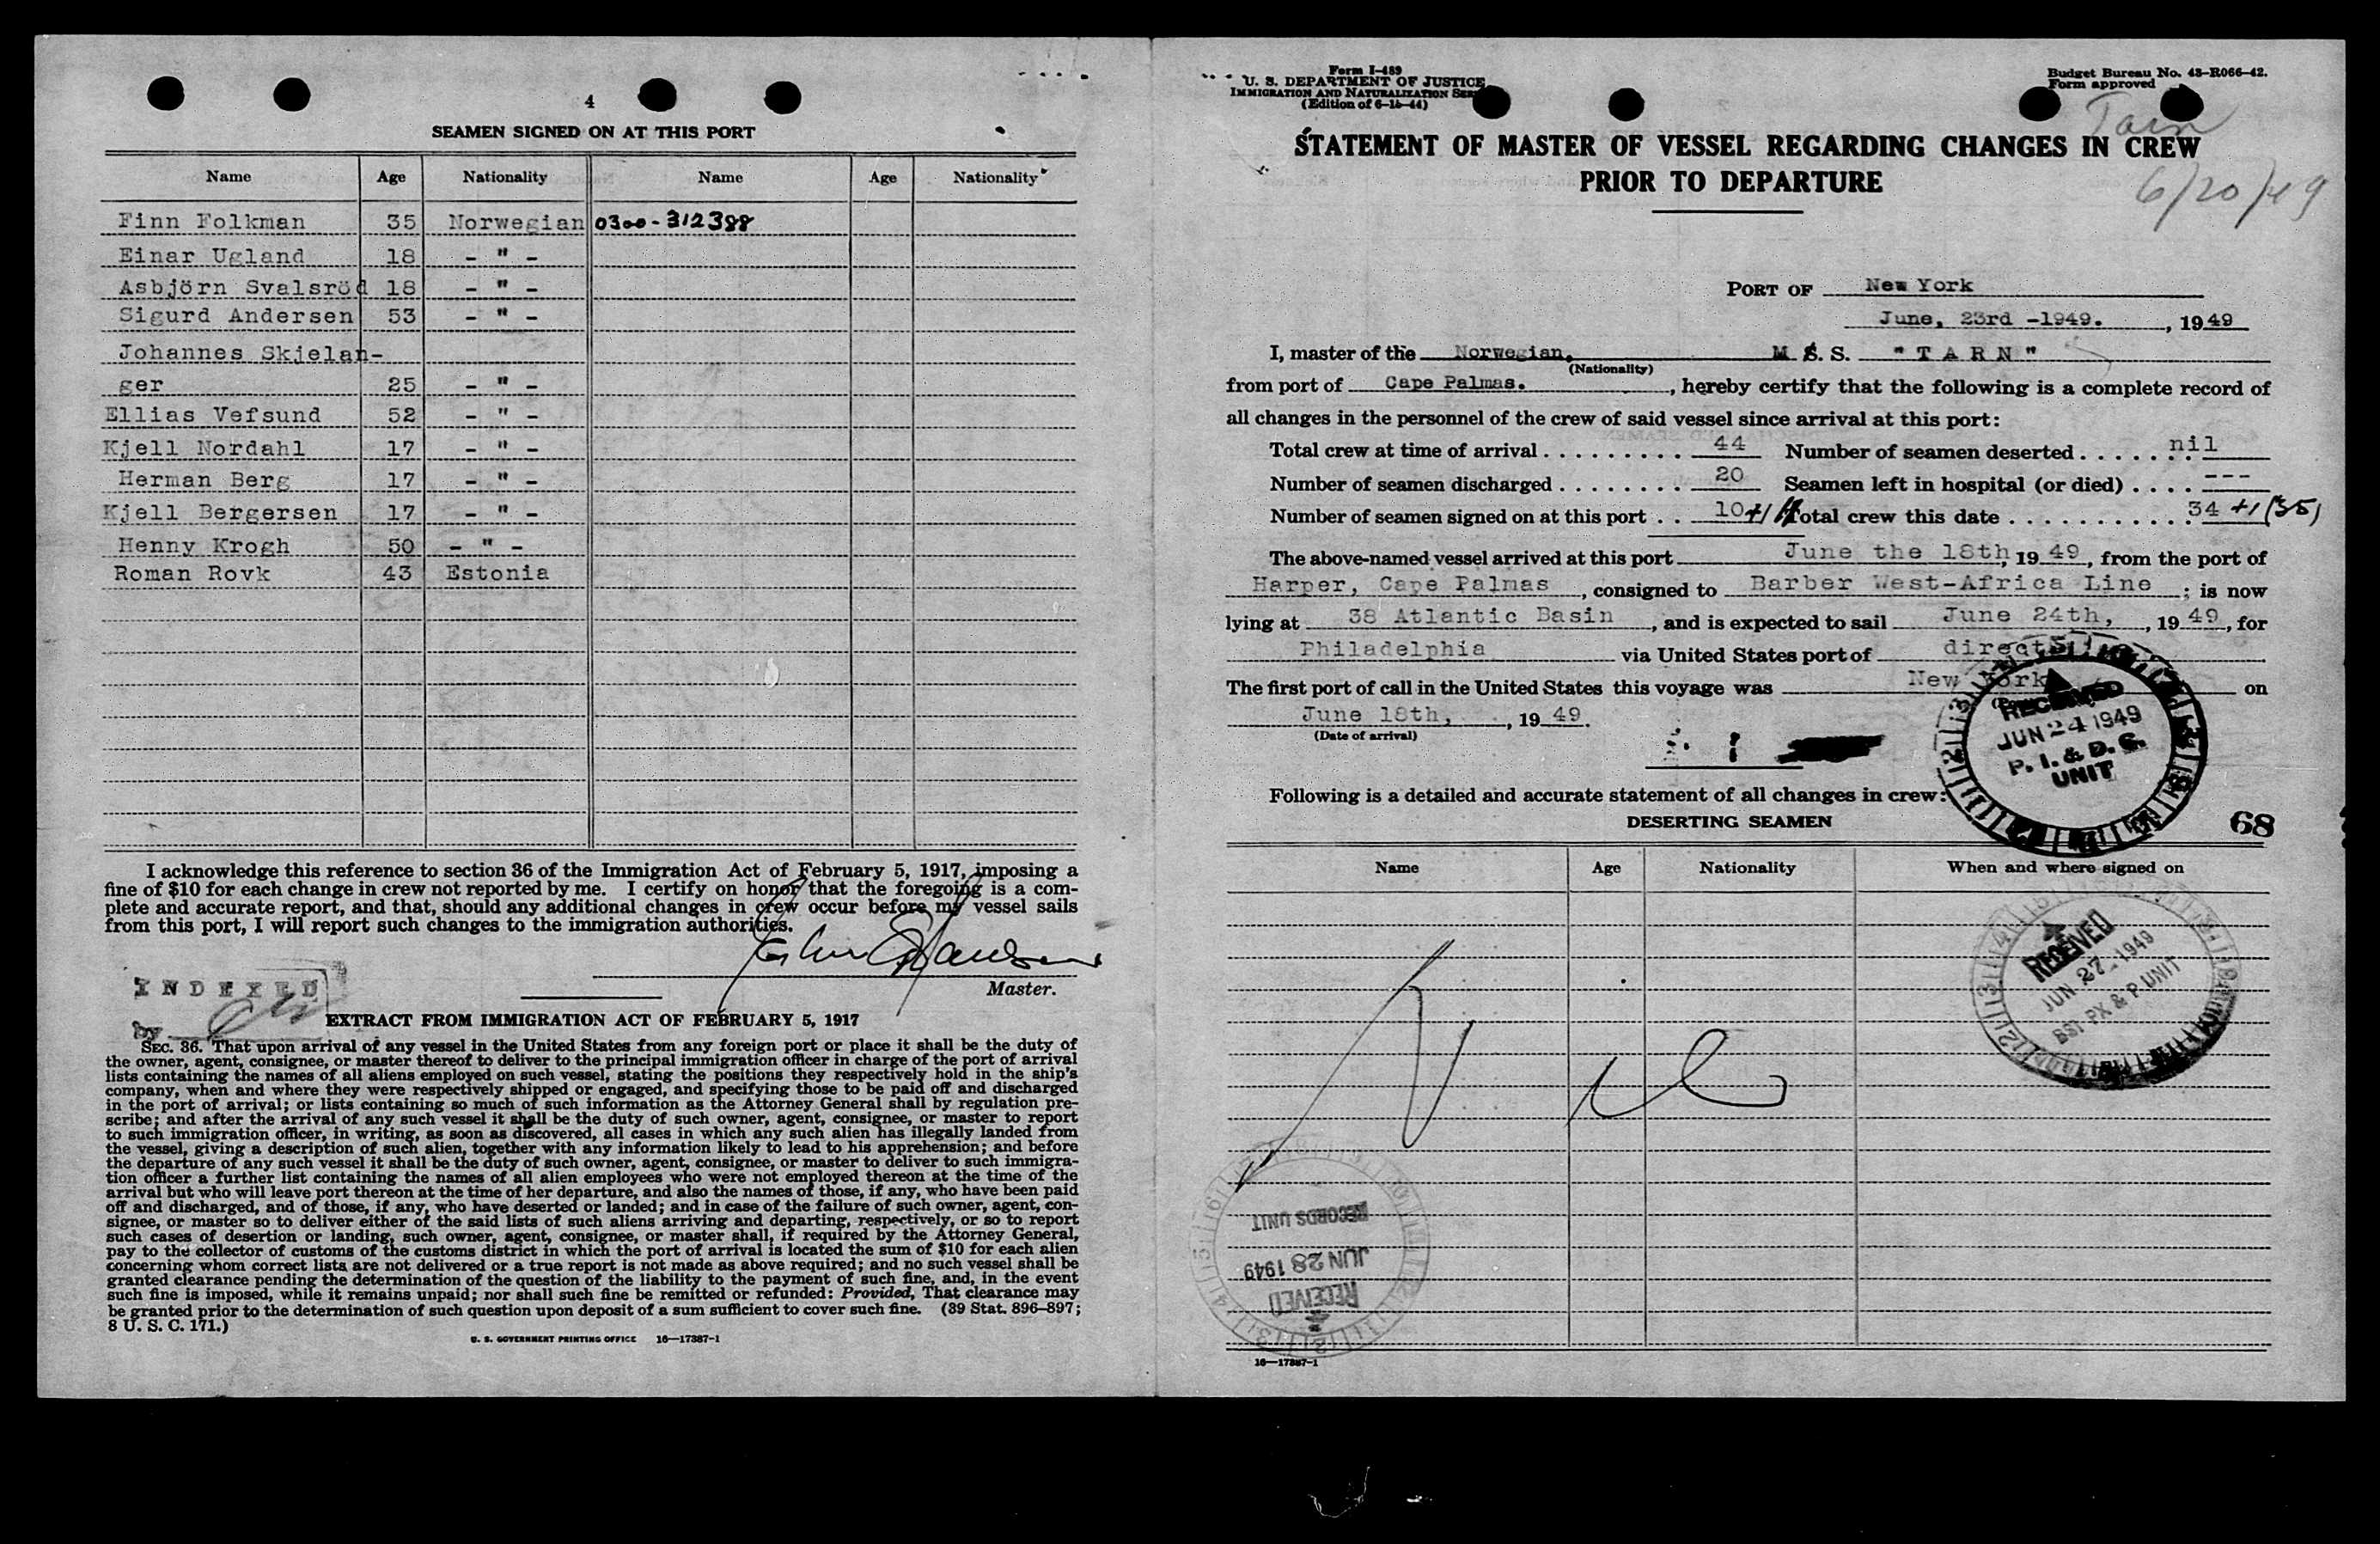 4
SEAMEN SIGNED ON AT THIS PORT
Name Age Nationality Name Age Nationality
Finn Folkman 35 Norwegian 0300-312388
Einar Ugland 18 - " -
Asbjörn Svalsröd 18 - " -
Sigurd Andersen 53 - " -
Johannes Skjelan-
ger 25 - " -
Ellias Vefsund 52 - " -
Kjell Nordahl 17 - " -
Herman Berg 17 - " -
Kjell Bergersen 17 - " -
Henny Krogh 50 - " -
Roman Rovk 43 Estonia
I acknowledge this reference to section 36 of the Immigration Act of February 5, 1917, imposing a
fine of $10 for each change in crew not reported by me. I certify on honor that the foregoing is a com-
plete and accurate report, and that, should any additional changes in crew occur before my vessel sails
from this port, I will report such changes to the immigration authorities.
Master.
INDEXED
by
EXTRACT FROM IMMIGRATION ACT OF FEBRUARY 5, 1917
SEC. 36. That upon arrival of any vessel in the United States from any foreign port or place it shall be the duty of
the owner, agent, consignee, or master thereof to deliver to the principal immigration officer in charge of the port of arrival
lists containing the names of all aliens employed on such vessel, stating the positions they respectively hold in the ship's
company, when and where they were respectively shipped or engaged, and specifying those to be paid off and discharged
in the port of arrival; or lists containing so much of such information as the Attorney General shall by regulation pre-
scribe; and after the arrival of any such vessel it shall be the duty of such owner, agent, consignee, or master to report
to such immigration officer, in writing, as soon as discovered, all cases in which any such alien has illegally landed from
the vessel, giving a description of such alien, together with any information likely to lead to his apprehension; and before
the departure of any such vessel it shall be the duty of such owner, agent, consignee, or master to deliver to such immigra-
tion officer a further list containing the names of all alien employees who were not employed thereon at the time of the
arrival but who will leave port thereon at the time of her departure, and also the names of those, if any, who have been paid
off and discharged, and of those, if any, who have deserted or landed; and in case of the failure of such owner, agent, con-
signee, or master so to deliver either of the said lists of such aliens arriving and departing, respectively, or so to report
such cases of desertion or landing, such owner, agent, consignee, or master shall, if required by the Attorney General,
pay to the collector of customs of the customs district in which the port of arrival is located the sum of $10 for each alien
concerning whom correct lists are not delivered or a true report is not made as above required; and no such vessel shall be
granted clearance pending the determination of the question of the liability to the payment of such fine, and, in the event
such fine is imposed, while it remains unpaid; nor shall such fine be remitted or refunded: Provided, That clearance may
be granted prior to the determination of such question upon deposit of a sum sufficient to cover such fine. (39 Stat. 896-897;
8 U. S. C. 171.)
U. S. GOVERNMENT PRINTING OFFICE 16—17387-1
Form I-489
U. S. DEPARTMENT OF JUSTICE
IMMIGRATION AND NATURALIZATION
(Edition of 6-15-44)
Budget Bureau No. 43-R066-42.
Form approved
Tarn
STATEMENT OF MASTER OF VESSEL REGARDING CHANGES IN CREW
PRIOR TO DEPARTURE
6/20/49
PORT OF New York
June, 23rd -1949. , 1949
I, master of the Norwegian, M. S. S. "TARN"
(Nationality)
from port of Cape Palmas. , hereby certify that the following is a complete record of
all changes in the personnel of the crew of said vessel since arrival at this port:
Total crew at time of arrival 44 Number of seamen deserted nil
Number of seamen discharged 20 Seamen left in hospital (or died) ---
Number of seamen signed on at this port 10+1 Total crew this date 34 +1 (35)
The above-named vessel arrived at this port June the 18th, 19 49, from the port of
Harper, Cape Palmas , consigned to Barber West-Africa Line ; is now
lying at 38 Atlantic Basin , and is expected to sail June 24th, , 19 49, for
Philadelphia via United States port of direct
The first port of call in the United States this voyage was New York on
June 18th, , 19 49.
(Date of arrival)
RECEIVED
JUN 24 1949
P. I. & D. C.
UNIT
Following is a detailed and accurate statement of all changes in crew:
DESERTING SEAMEN
68
Name Age Nationality When and where signed on
RECEIVED
JUN 27 1949
BST PX & P UNIT
RECORDS UNIT
JUN 28 1949
RECEIVED
16—17387-1